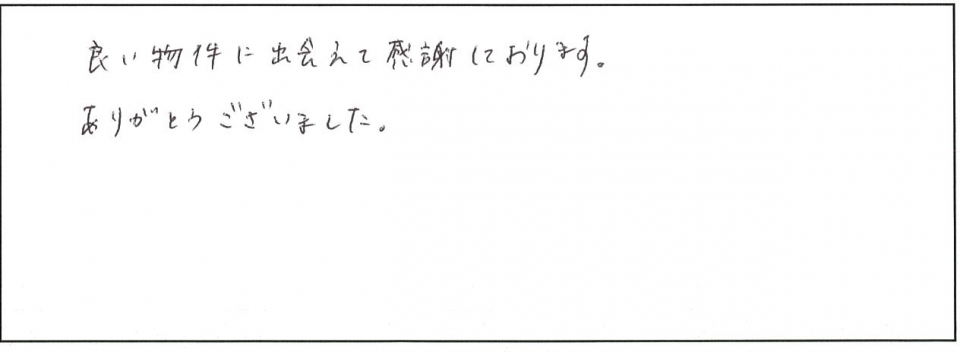 良い物件に出会えて感謝しております。
ありがとうございました。